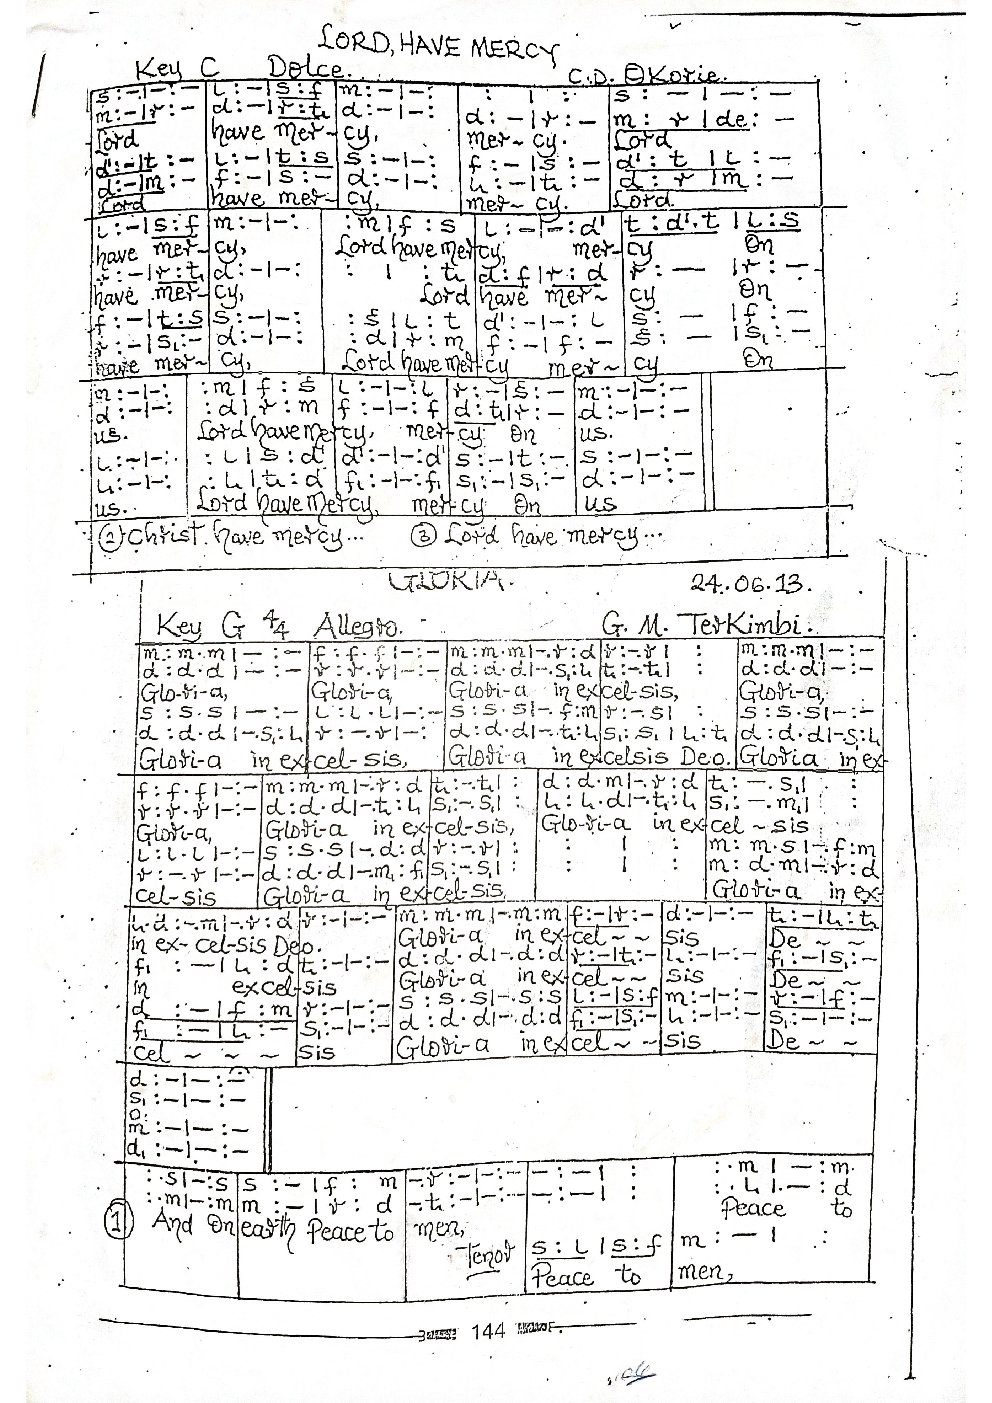 LORD, HAVE MERCY
Key C Dolce. C.D. Okorie.
s : – | – : – | L : – | s : f | m : – | – : | : | : | s : – | – : –
m : – | r : – | d : – | r : t₁ | d : – | – : | d : – | r : – | m : r | de : –
Lord have mer- cy, mer~ cy. Lord
d' : – | t : – | L : – | t : s | s : – | – : | f : – | s : – | d' : t | L : –
d : – | m : – | f : – | s : – | d : – | – : | L₁ : – | t₁ : – | d : r | m : –
Lord have mer- cy, mer~ cy. Lord
L : – | s : f | m : – | – : | : m | f : s | L : – | – : d' | t : d'.t | L : s
have mer~ cy, Lord have mercy, mer- cy On
r : – | r : t₁ | d : – | – : | : | : t₁ | d : f | r : d | r : – | r : –
have mer~ cy, Lord have mer~ cy On
f : – | t : s | s : – | – : | : s | L : t | d' : – | – : L | s : – | f : –
r : – | s₁ : – | d : – | – : | : d | r : m | f : – | f : – | s : – | s₁ : –
have mer~ cy, Lord have mercy mer~ cy On
m : – | – : | : m | f : s | L : – | – : L | r : – | s : – | m : – | – : –
d : – | – : | : d | r : m | f : – | – : f | d : t₁ | r : – | d : – | – : –
us. Lord have mercy, mercy On us.
L : – | – : | : L | s : d' | d' : – | – : d' | s : – | t : – | s : – | – : –
L₁ : – | – : | : L₁ | t₁ : d | f₁ : – | – : f₁ | s₁ : – | s₁ : – | d : – | – : –
us. Lord have Mercy, mercy On us
② Christ have mercy... ③ Lord have mercy...
GLORIA. 24.06.13.
Key G 4/4 Allegro. G. M. TerKimbi.
m : m.m | – : – | f : f.f | – : – | m : m.m | –.r : d | r : –.r | : | m : m.m | – : –
d : d.d | – : – | r : r.r | – : – | d : d.d | –.s₁ : L₁ | t₁ : –.t₁ | : | d : d.d | – : –
Glo-ri-a, Glori-a, Glori-a in excel-sis, Glori-a,
s : s.s | – : – | L : L.L | – : – | s : s.s | –.f : m | r : –.s | : | s : s.s | – : –
d : d.d | –.s₁ : L₁ | r : –.r | – : | d : d.d | –.t₁ : L₁ | s₁ : s₁.s₁ | L₁ : t₁ | d : d.d | –.s₁ : L₁
Glori-a in excel-sis, Glori-a in excelsis Deo. Gloria in ex-
f : f.f | – : – | m : m.m | –.r : d | t₁ : –.t₁ | : | d : d.m | –.r : d | t₁ : –.s₁ | :
r : r.r | – : – | d : d.d | –.t₁ : L₁ | s₁ : –.s₁ | : | L₁ : L₁.d | –.t₁ : L₁ | s₁ : –.m₁ | :
Glori-a, Glori-a in excel-sis, Glo-ri-a in excel~sis
L : L.L | – : – | s : s.s | –.d : d | r : –.r | : | : | : | m : m.s | –.f : m
r : –.r | – : – | d : d.d | –.m₁ : f₁ | s₁ : –.s₁ | : | : | : | m : d.m | –.r : d
cel-sis Glori-a in excel-sis, Glori-a in ex-
L₁.d : –.m | –.r : d | r : – | – : – | m : m.m | –.m : m | f : – | r : – | d : – | – : – | t₁ : – | L₁ : t₁
in ex-cel-sis Deo. Glori-a in excel~~ sis De~~
f₁ : – | L₁ : d | t₁ : – | – : – | d : d.d | –.d : d | r : – | t₁ : – | L₁ : – | – : – | f₁ : – | s₁ : –
in excelsis Glori-a in excel~~ sis De~~
d : – | f : m | r : – | – : – | s : s.s | –.s : s | L : – | s : f | m : – | – : – | r : – | f : –
f₁ : – | L₁ : – | s₁ : – | – : – | d : d.d | –.d : d | f₁ : – | s₁ : – | L₁ : – | – : – | s₁ : – | – : –
cel~~~ sis Glori-a in excel~~ sis De~~
d : – | – : –
s₁ : – | – : –
o.
m : – | – : –
d₁ : – | – : –
: .s | – : s | s : – | f : m | –.r : – | – : – | – : – | : | : .m | – : m
: .m | – : m | m : – | r : d | –.t₁ : – | – : – | – : – | : | : .L₁ | – : d
① And On earth Peace to men, Peace to
Tenor s : L | s : f | m : – | :
Peace to men,
144